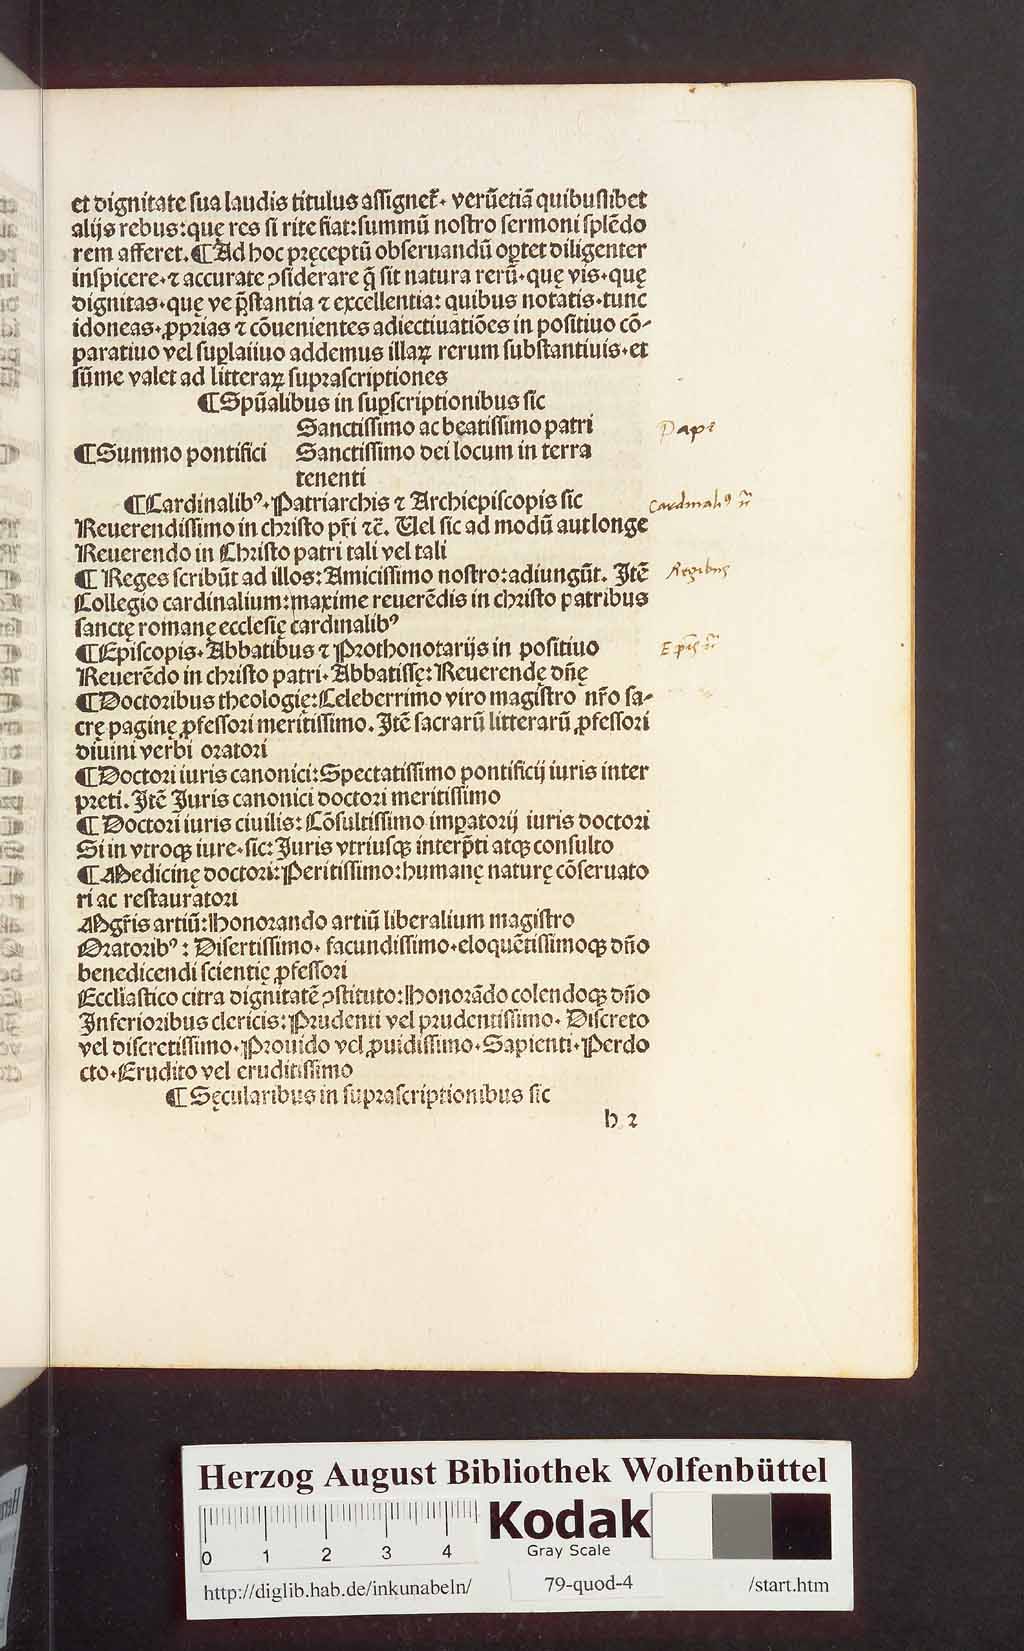 et dignitate sua laudis titulus assignet᷑. verūetiā quibuslibet
alijs rebus: quę res si rite fiat: summū nostro sermoni splēdo
rem afferet. ¶ Ad hoc pręceptū obseruandū oꝑtet diligenter
inspicere. ⁊ accurate ꝯsiderare q̄ sit natura rerū. quę vis. quę
dignitas. quę ve p̄stantia ⁊ excellentia: quibus notatis. tunc
idoneas. ꝓprias ⁊ cōuenientes adiectiuatiōes in positiuo cō-
paratiuo vel suꝑlatiuo addemus illaꝝ rerum substantiuis. et
sūme valet ad litteraꝝ suprascriptiones
¶ Spūalibus in suꝑscriptionibus sic
Sanctissimo ac beatissimo patri
¶ Summo pontifici Sanctissimo dei locum in terra
tenenti
¶ Cardinalibꝰ. Patriarchis ⁊ Archiepiscopis sic
Reuerendissimo in christo pr̄i ⁊c̄. Uel sic ad modū aut longe
Reuerendo in Christo patri tali vel tali
¶ Reges scribūt ad illos: Amicissimo nostro: adiungūt. Itē
Collegio cardinalium: maxime reuerēdis in christo patribus
sanctę romanę ecclesię cardinalibꝰ
¶ Episcopis. Abbatibus ⁊ Prothonotarijs in positiuo
Reuerēdo in christo patri. Abbatissę: Reuerendę dn̄ę
¶ Doctoribus theologię: Celeberrimo viro magistro nr̄o sa-
crę paginę ꝓfessori meritissimo. Itē sacrarū litterarū ꝓfessori
diuini verbi oratori
¶ Doctori iuris canonici: Spectatissimo pontificij iuris inter
preti. Itē Iuris canonici doctori meritissimo
¶ Doctori iuris ciuilis: Cōsultissimo imꝑatorij iuris doctori
Si in vtroqꝫ iure. sic: Iuris vtriusqꝫ interp̄ti atqꝫ consulto
¶ Medicinę doctori: Peritissimo: humanę naturę cōseruato
ri ac restauratori
Mgr̄is artiū: Honorando artiū liberalium magistro
Oratoribꝰ: Disertissimo. facundissimo. eloquētissimoqꝫ dn̄o
benedicendi scientię ꝓfessori
Eccliastico citra dignitatē ꝯstituto: Honorādo colendoqꝫ dn̄o
Inferioribus clericis: Prudenti vel prudentissimo. Discreto
vel discretissimo. Prouido vel ꝓuidissimo. Sapienti. Perdo
cto. Erudito vel eruditissimo
¶ Sęcularibus in suprascriptionibus sic
h 2
Papę
Cardinalꝰ
Regibus
Herzog August Bibliothek Wolfenbüttel
0 1 2 3 4
Kodak
Gray Scale
http://diglib.hab.de/inkunabeln/ 79-quod-4 /start.htm